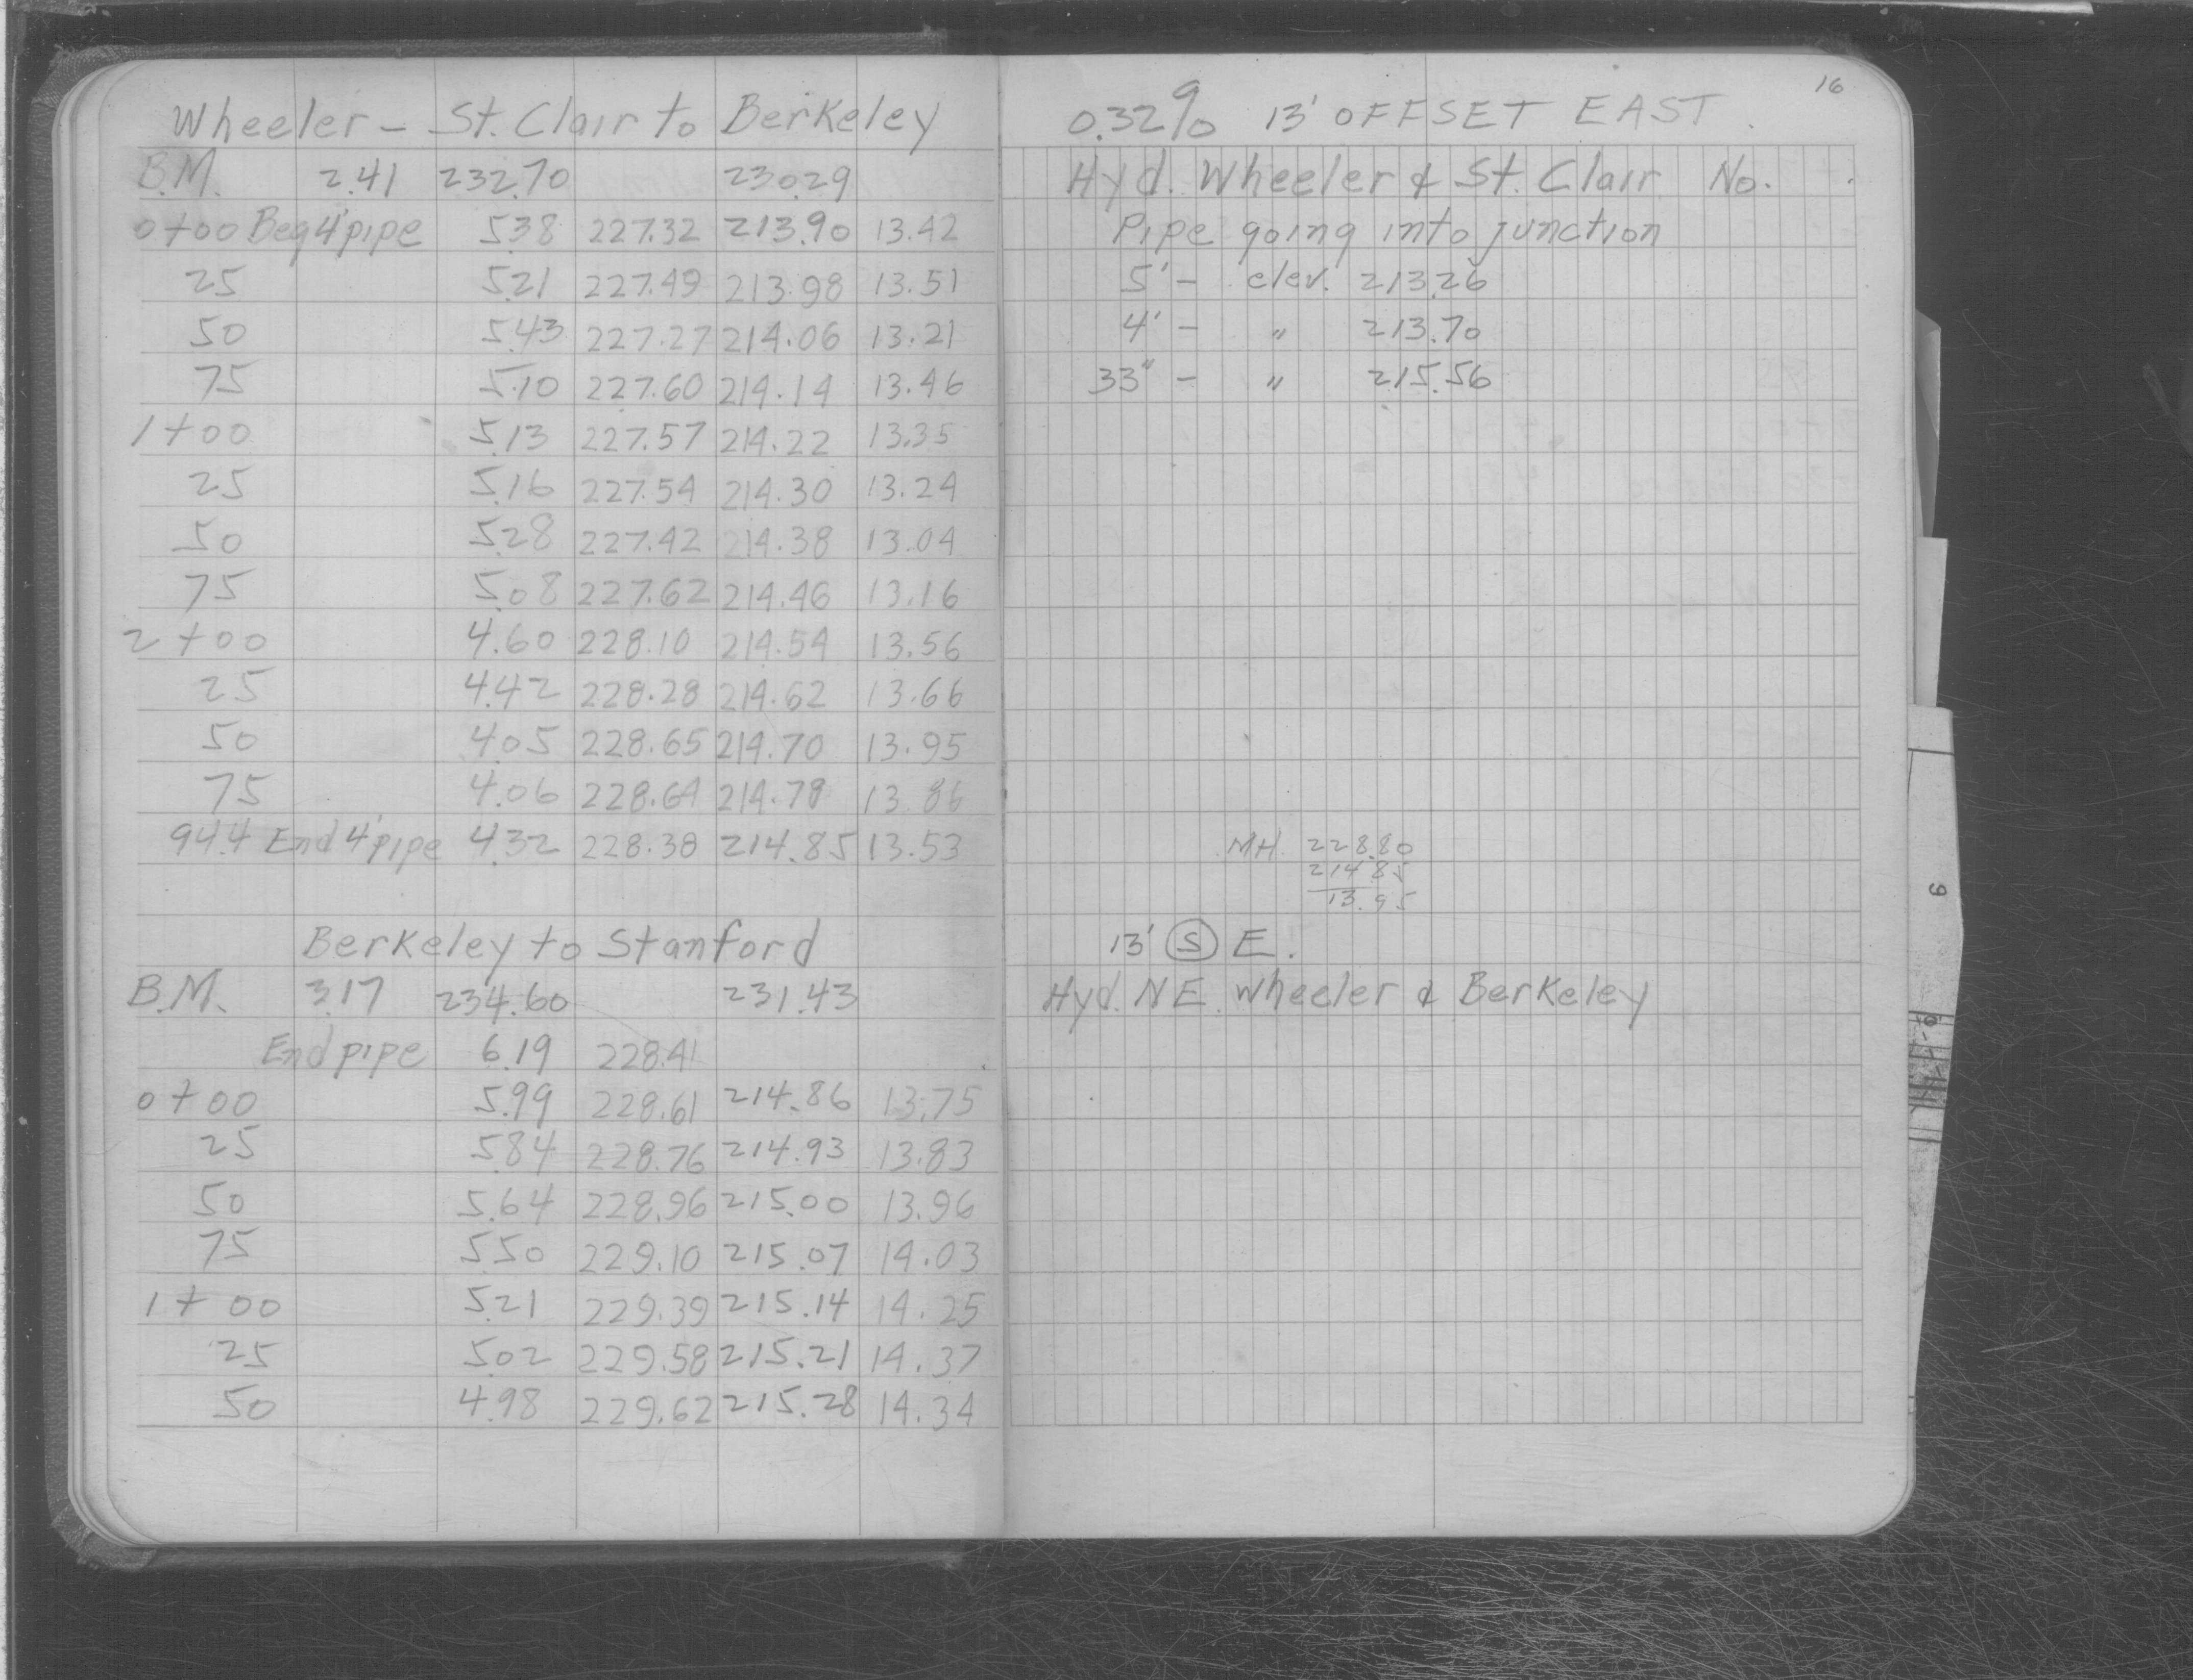 Wheeler - St. Clair to Berkeley
B.M. 2.41 232.70 230.29
0+00 Beg 4' pipe 5.38 227.32 213.90 13.42
25 5.21 227.49 213.98 13.51
50 5.43 227.27 214.06 13.21
75 5.10 227.60 214.14 13.46
1+00 5.13 227.57 214.22 13.35
25 5.16 227.54 214.30 13.24
50 5.28 227.42 214.38 13.04
75 5.08 227.62 214.46 13.16
2+00 4.60 228.10 214.54 13.56
25 4.42 228.28 214.62 13.66
50 4.05 228.65 214.70 13.95
75 4.06 228.64 214.78 13.86
94.4 End 4' pipe 4.32 228.38 214.85 13.53
Berkeley to Stanford
B.M. 3.17 234.60 231.43
End pipe 6.19 228.41
0+00 5.99 228.61 214.86 13.75
25 5.84 228.76 214.93 13.83
50 5.64 228.96 215.00 13.96
75 5.50 229.10 215.07 14.03
1+00 5.21 229.39 215.14 14.25
25 5.02 229.58 215.21 14.37
50 4.98 229.62 215.28 14.34
16
0.32% 13' OFFSET EAST
Hyd. Wheeler & St. Clair No.
Pipe going into junction
5' - elev. 213.26
4' - " 213.70
33" - " 215.56
MH 228.80
214.85
13.95
13' S E.
Hyd. NE. Wheeler & Berkeley
9